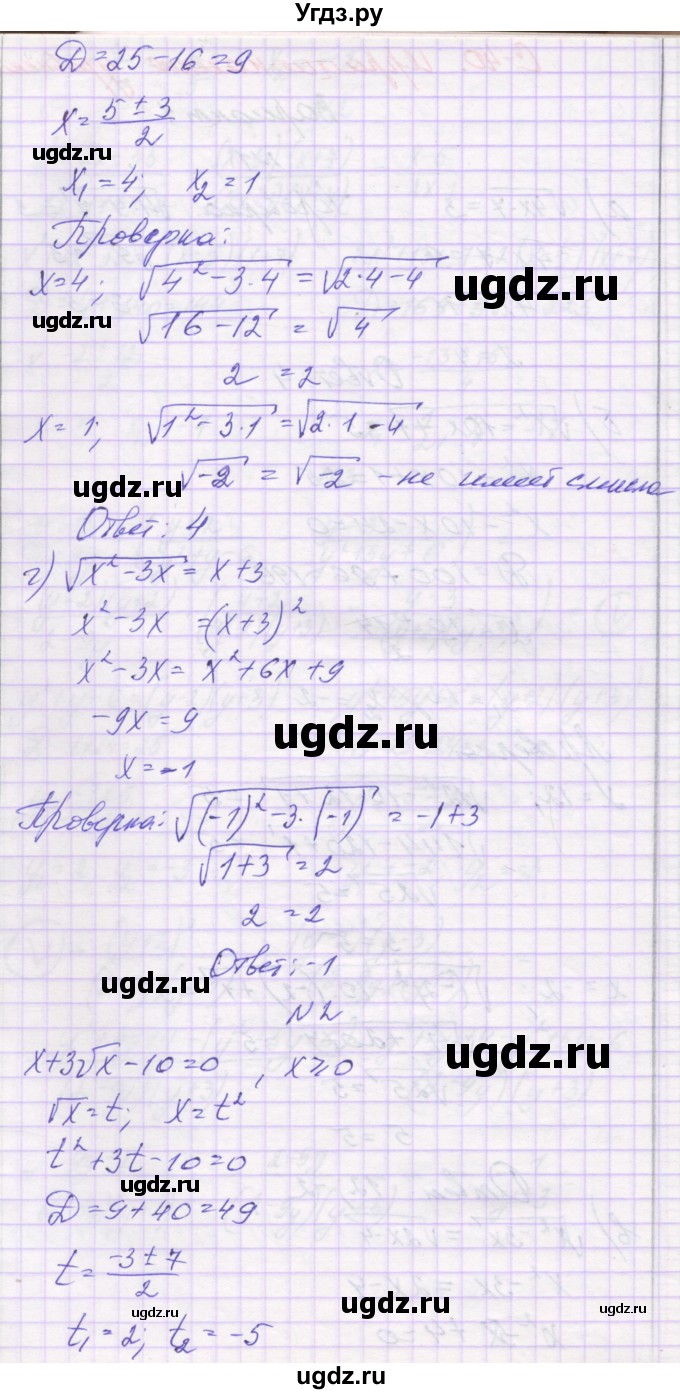 Угдз.ру
Д = 25 - 16 = 9
x = (5 ± 3)/2
ugdz.ru
x₁ = 4; x₂ = 1
Проверка:
x = 4; √(4² - 3·4) = √(2·4 - 4)
ugdz.ru
ugdz.ru
√(16 - 12) = √4
2 = 2
x = 1; √(1² - 3·1) = √(2·1 - 4)
√-2 = √-2 - не имеет смысла
ugdz.ru
Ответ: 4
г) √(x² - 3x) = x + 3
x² - 3x = (x + 3)²
x² - 3x = x² + 6x + 9
-9x = 9
ugdz.ru
x = -1
Проверка: √((-1)² - 3·(-1)) = -1 + 3
√(1 + 3) = 2
2 = 2
Ответ: -1
ugdz.ru
N2
x + 3√x - 10 = 0 , x ≥ 0
ugdz.ru
√x = t; x = t²
t² + 3t - 10 = 0
ugdz.ru
Д = 9 + 40 = 49
t = (-3 ± 7)/2
ugdz.ru
ugdz.ru
ugdz.ru
t₁ = 2; t₂ = -5
ugdz.ru